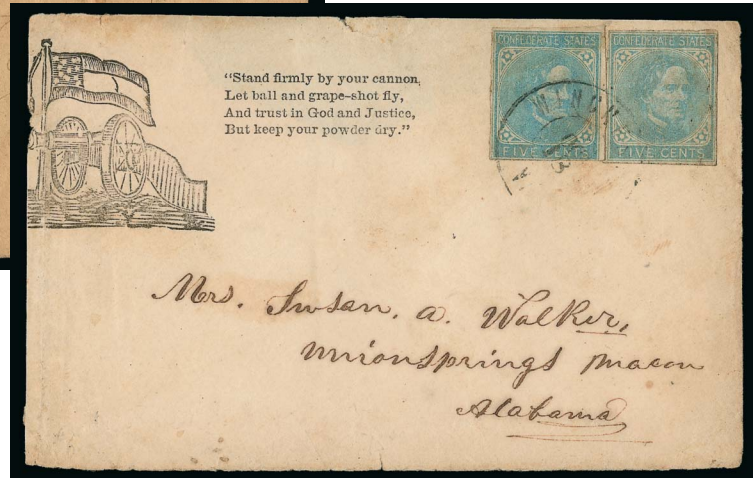 "Stand firmly by your cannon,
Let ball and grape-shot fly,
And trust in God and Justice,
But keep your powder dry."
CONFEDERATE STATES
FIVE CENTS
CONFEDERATE STATES
FIVE CENTS
Mrs. Susan. A. Walker,
Unionsprings Macon
Alabama